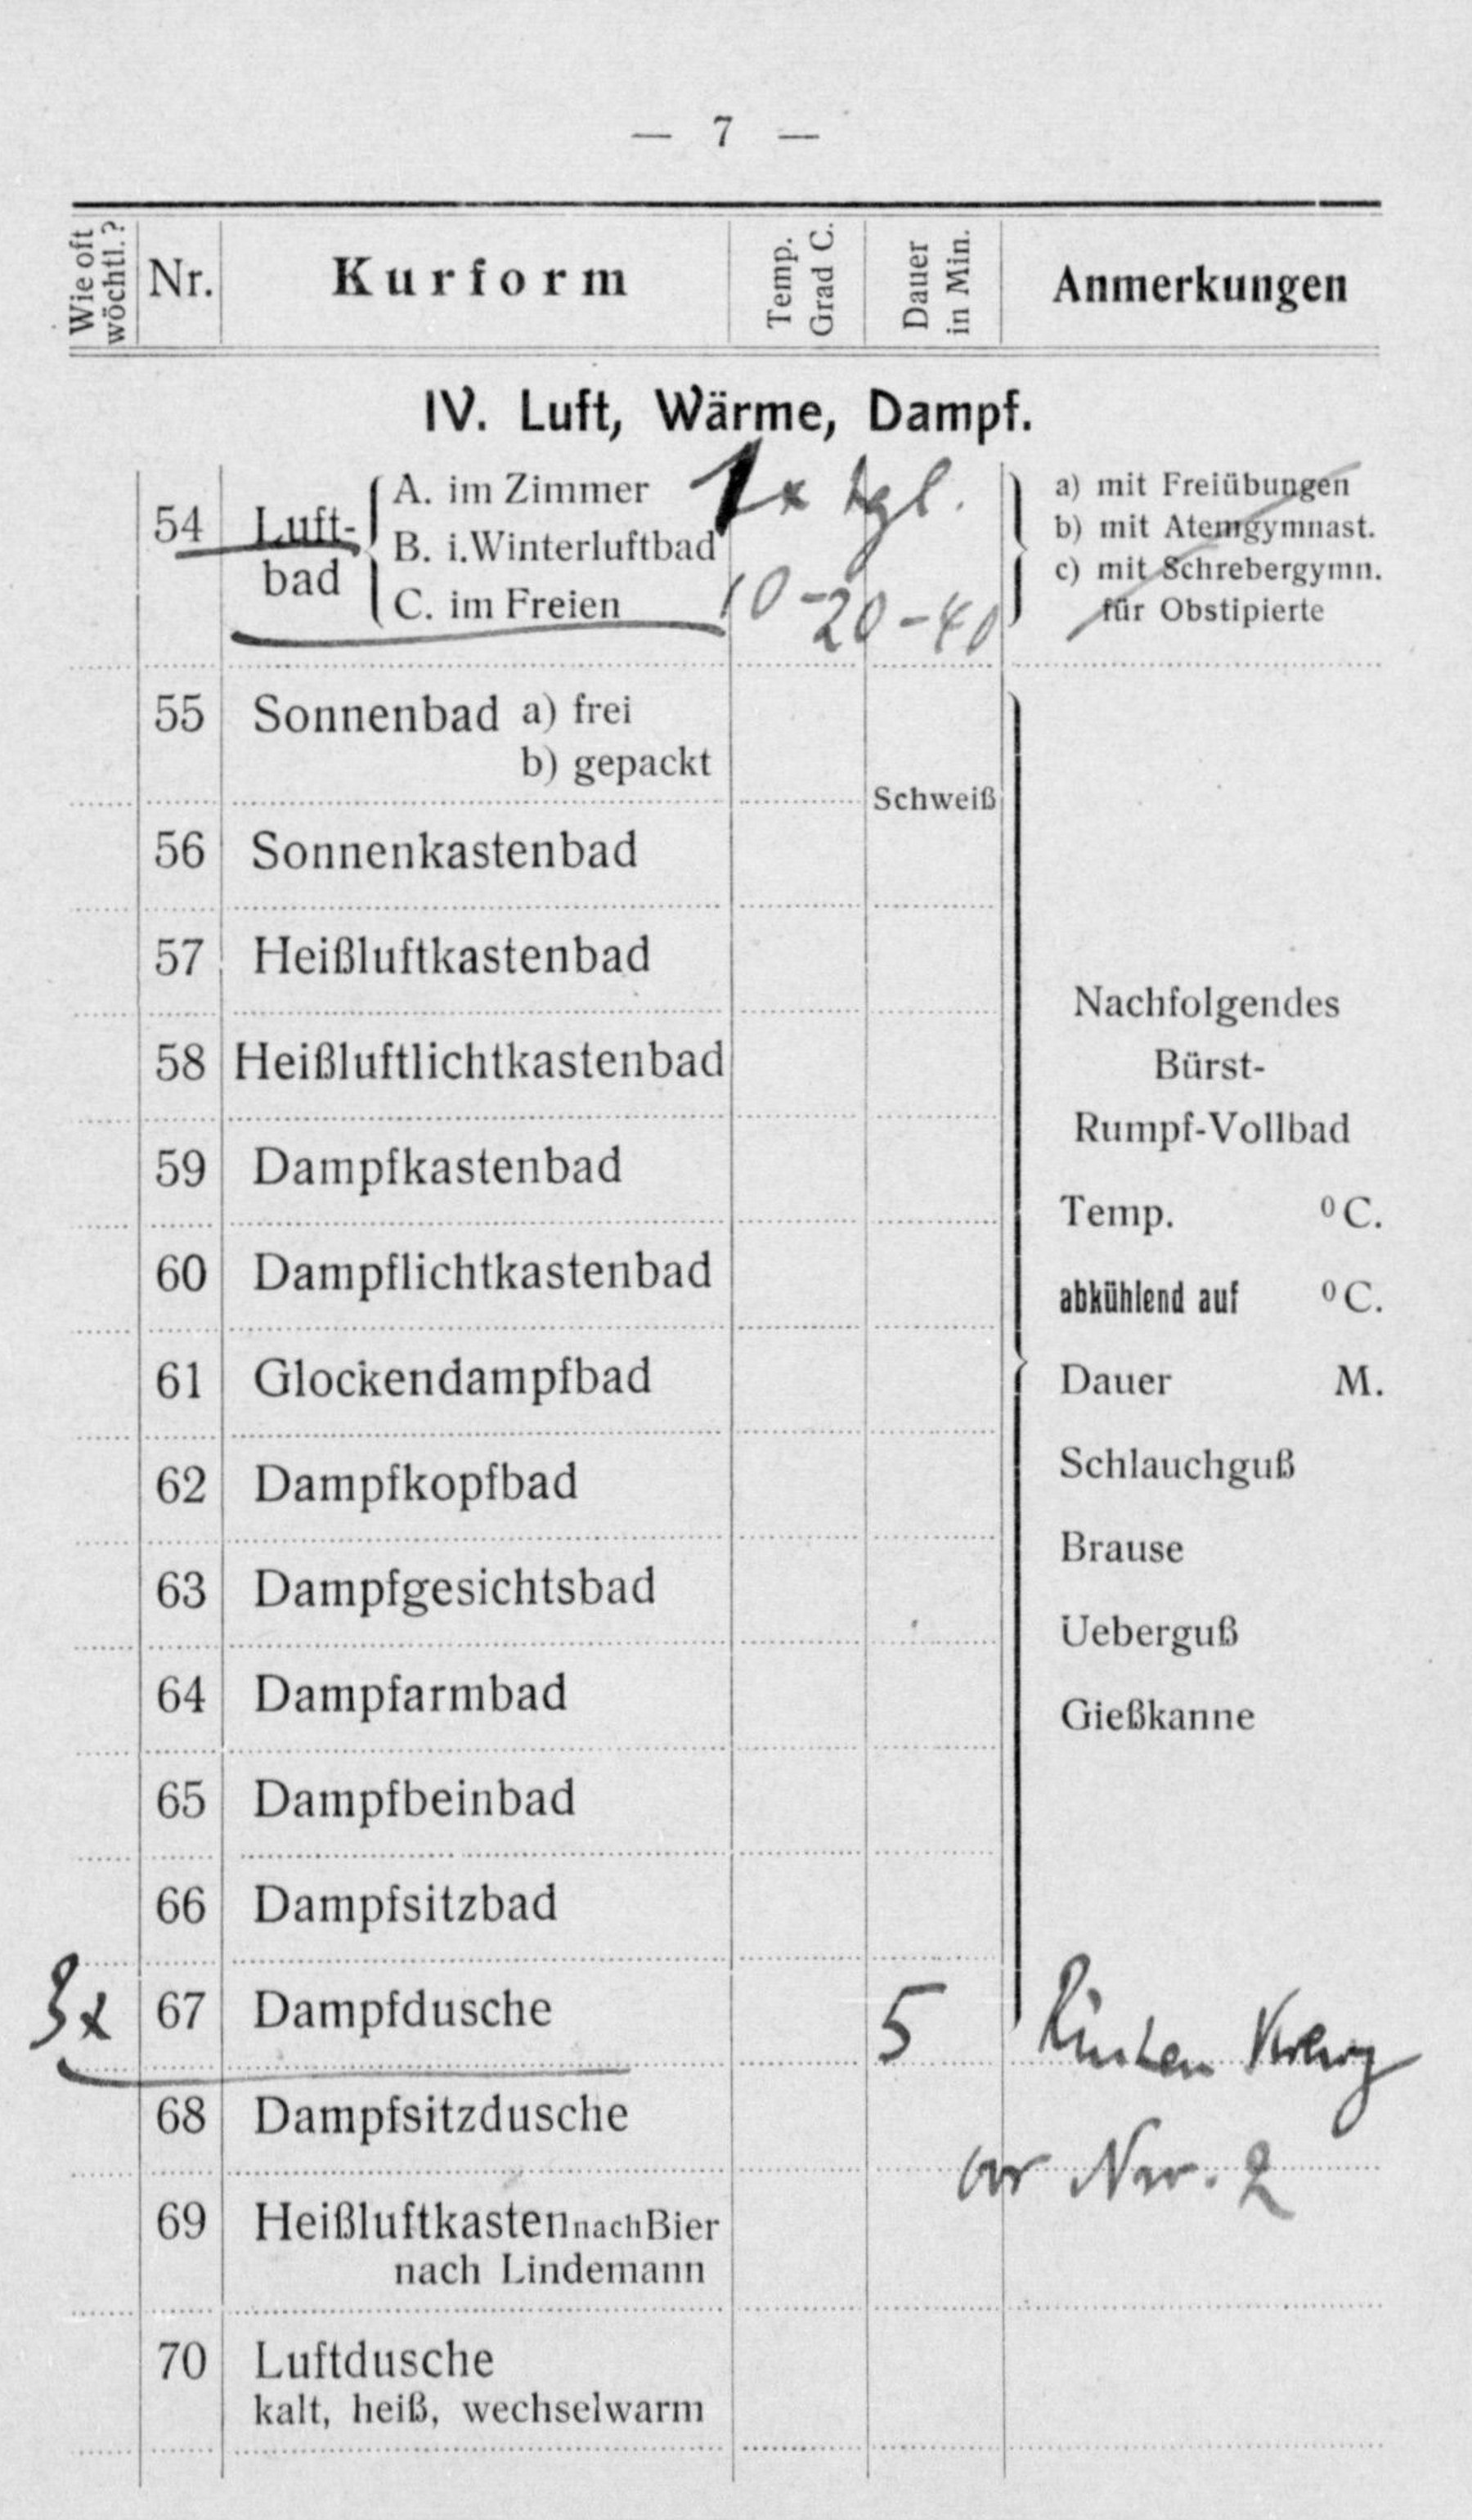 — 7 —
Wie oft wöchtl.? Nr. Kurform Temp. Grad C. Dauer in Min. Anmerkungen
IV. Luft, Wärme, Dampf.
A. im Zimmer 1x tgl. a) mit Freiübungen
54 Luft- B. i.Winterluftbad b) mit Atemgymnast.
bad c) mit Schrebergymn.
C. im Freien 10-20-40 für Obstipierte
55 Sonnenbad a) frei
b) gepackt
Schweiß
56 Sonnenkastenbad
57 Heißluftkastenbad
Nachfolgendes
58 Heißluftlichtkastenbad Bürst-
Rumpf-Vollbad
59 Dampfkastenbad
Temp. ⁰C.
60 Dampflichtkastenbad
abkühlend auf ⁰C.
61 Glockendampfbad Dauer M.
62 Dampfkopfbad Schlauchguß
Brause
63 Dampfgesichtsbad
Ueberguß
64 Dampfarmbad
Gießkanne
65 Dampfbeinbad
66 Dampfsitzbad
3x 67 Dampfdusche 5
68 Dampfsitzdusche
vor Nr. 2
69 Heißluftkasten nach Bier
nach Lindemann
70 Luftdusche
kalt, heiß, wechselwarm